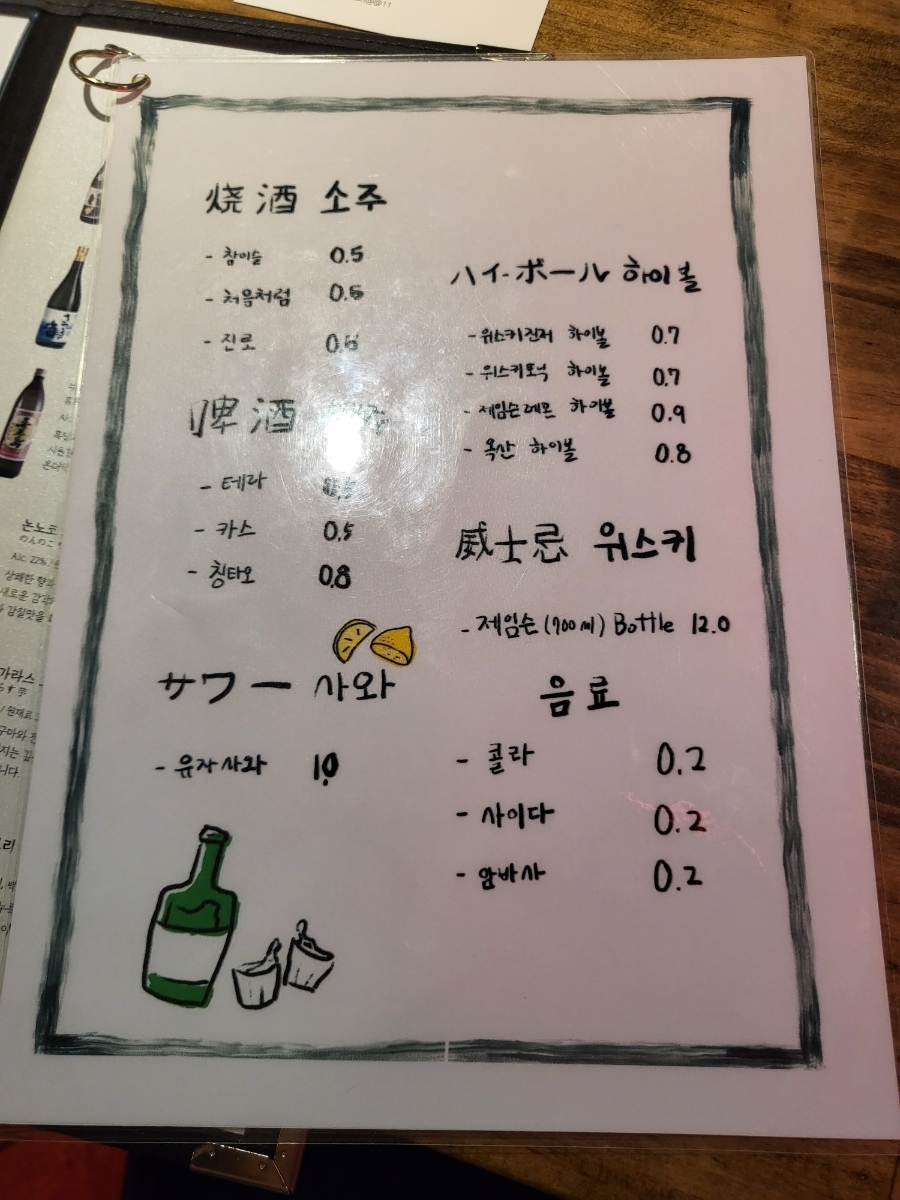 烧酒 소주
- 참이슬 0.5
- 처음처럼 0.5
- 진로
啤酒
- 테라
- 카스 0.5
- 칭타오 0.8
サワー 사와
- 유자사와 1.0
ハイ-ボール 하이볼
- 위스키진저 하이볼 0.7
- 위스키토닉 하이볼 0.7
- 제임슨레몬 하이볼 0.9
- 옥산 하이볼 0.8
威士忌 위스키
- 제임슨(700ml) Bottle 12.0
음료
- 콜라 0.2
- 사이다 0.2
- 암바사 0.2
논노코
Alc 22%